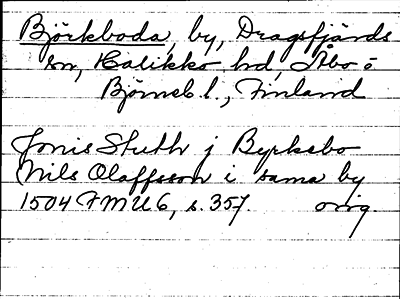 Björkboda, by, Dragsfjärds
sn, Halikko hd, Åbo o
Björneb l., Finland
Jonis Stuth j Byrkabo
Nils Olaffsson i sama by
1504 FMU 6, s. 357. orig.